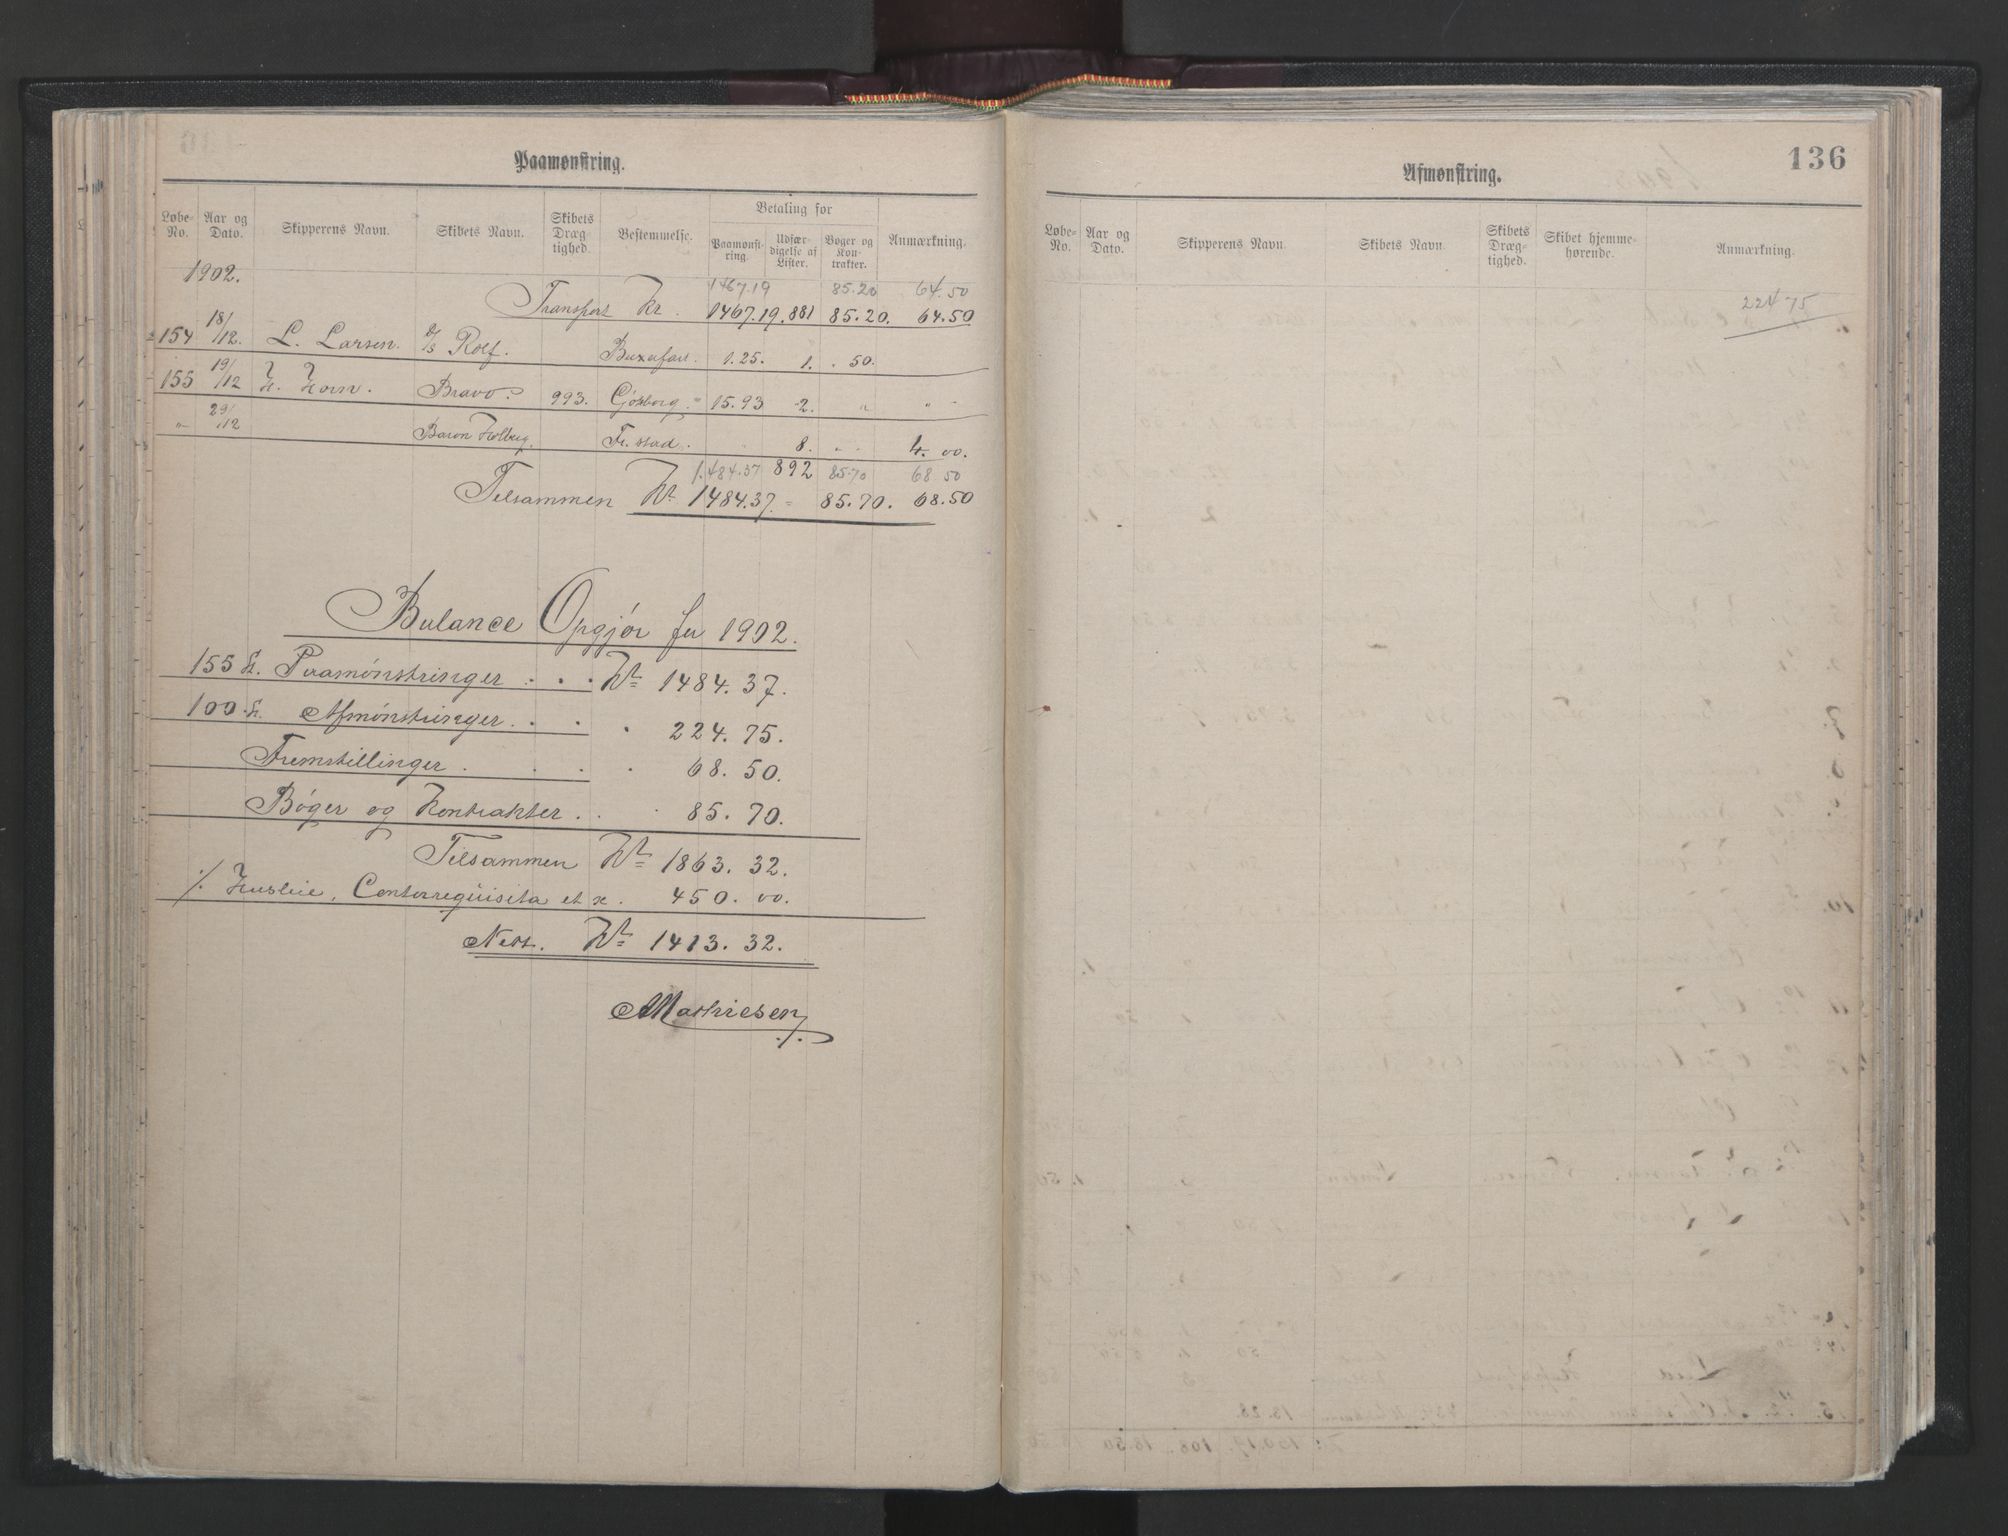 Paamønstring.
Løbe-No. Aar og Dato. Skipperens Navn. Skibets Navn. Skibets Dræg-tighed. Bestemmelse. Betaling for Paamønst-ring. Udfær-digelse af Lister. Bøger og Kon-trakter. Anmærkning.
1902.
1467.19 85.20 64.50
Transport Kr. 1467.19. 881 85.20. 64.50
154 18/12. L. Larsen. D/S Rolf. 1.25. 1. . 50.
155 19/12 H. Horn. Bravo. 993. 15.93 2. " "
" 29/12 Baron Holberg. Fr.stad. 8. " 4.00.
1.484.37 892 85.70 68 50
Tilsammen Kr. 1484.37. 85.70. 68.50
Balance Opgjør for 1902.
155 St. Paamønstringer . . . Kr. 1484.37.
100 St. Afmønstringer . . . 224.75.
Fremstillinger . . . . 68.50.
Bøger og Kontrakter . . . 85.70.
Tilsammen Kr. 1863.32.
./. Husleie, Contorrequisita et x. 450.00.
Netto. Kr. 1413.32.
AMathiesen
136
Afmønstring.
Løbe-No. Aar og Dato. Skipperens Navn. Skibets Navn. Skibets Dræg-tighed. Skibet hjemme-hørende. Anmærkning.
224 75